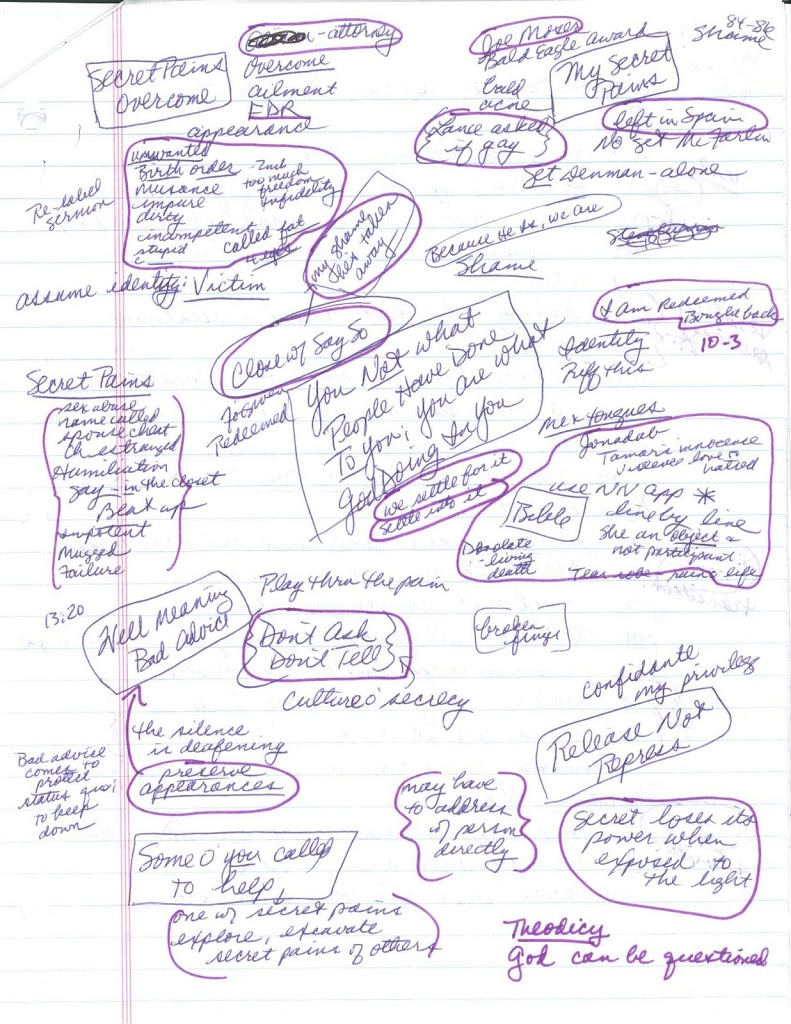 84-86
Shame
-attorney
Joe Moses
Bald Eagle award
Secret Pains
Overcome
Overcome
ailment
EDR
appearance
bald
acne
My Secret
Pains
Lance asked
if gay
left in Spain
No get McFarlin
Set Denman-alone
unwanted
Birth order
nuisance
impure
dirty
incompetent
stupid
too much
freedom
infidelity
called fat
4 eyes
Re-label
sermon
my shame
taken
away
Because He is, we are
Shame
assume identity: Victim
I am Redeemed
Bought back
10-3
Close w/ Say So
Forgiven
Redeemed
You Not what
People Have Done
To You; you are what
God Doing In You
we settle for it
settle into it
Identity
Riff this
Secret Pains
sex abuse
name called
spouse cheat
Ch estranged
Humiliation
Gay - in the closet
Beat up
Impotent
Mugged
Failure
Jonadab
Tamar's innocense
violence love to
hatred
use NN app *
Bible
line by line
She an object &
not participant
Desolate
-living
death
Tear robe ruins life
13:20
Well Meaning
Bad Advice
Play thru the pain
Don't Ask
Don't Tell
broken
fings
Culture o' secrecy
confidante
my privilege
Release Not
Repress
the silence
is deafening
preserve
appearances
Bad advice
comes to
protect
status quo;
to keep
down
may have
to address
w/ person
directly
Secret loses its
power when
exposed to
the light
Some o' you called
to help,
one w/ secret pains
explore, excavate
secret pains of others
Theodicy
God can be questioned